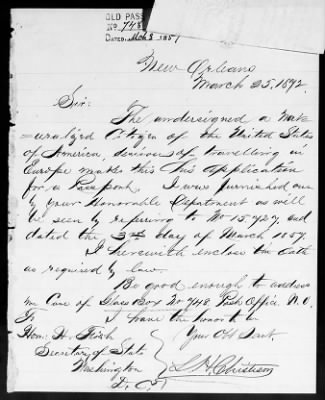 OLD PASS
No. 748
DATED: Mch 3 1857
New Orleans
March 25, 1872.
Sir:
The undersigned a Nat
=uralized Citizen of the United States
of America, desirous of travelling in
Europe makes this his application
for a Passport. I was furnished one
by your Honorable Department as will
be seen by referring to No 15.727, and
dated the 3rd day of March 1857.
I herewith enclose the Oath
as required by law.
Be good enough to address
me Care of Glass Box No 748 Post Office, N.O.
I have the honor to
Hon: H. Fish
Your Obt Servt.
Secretary of State
Washington
D. C.